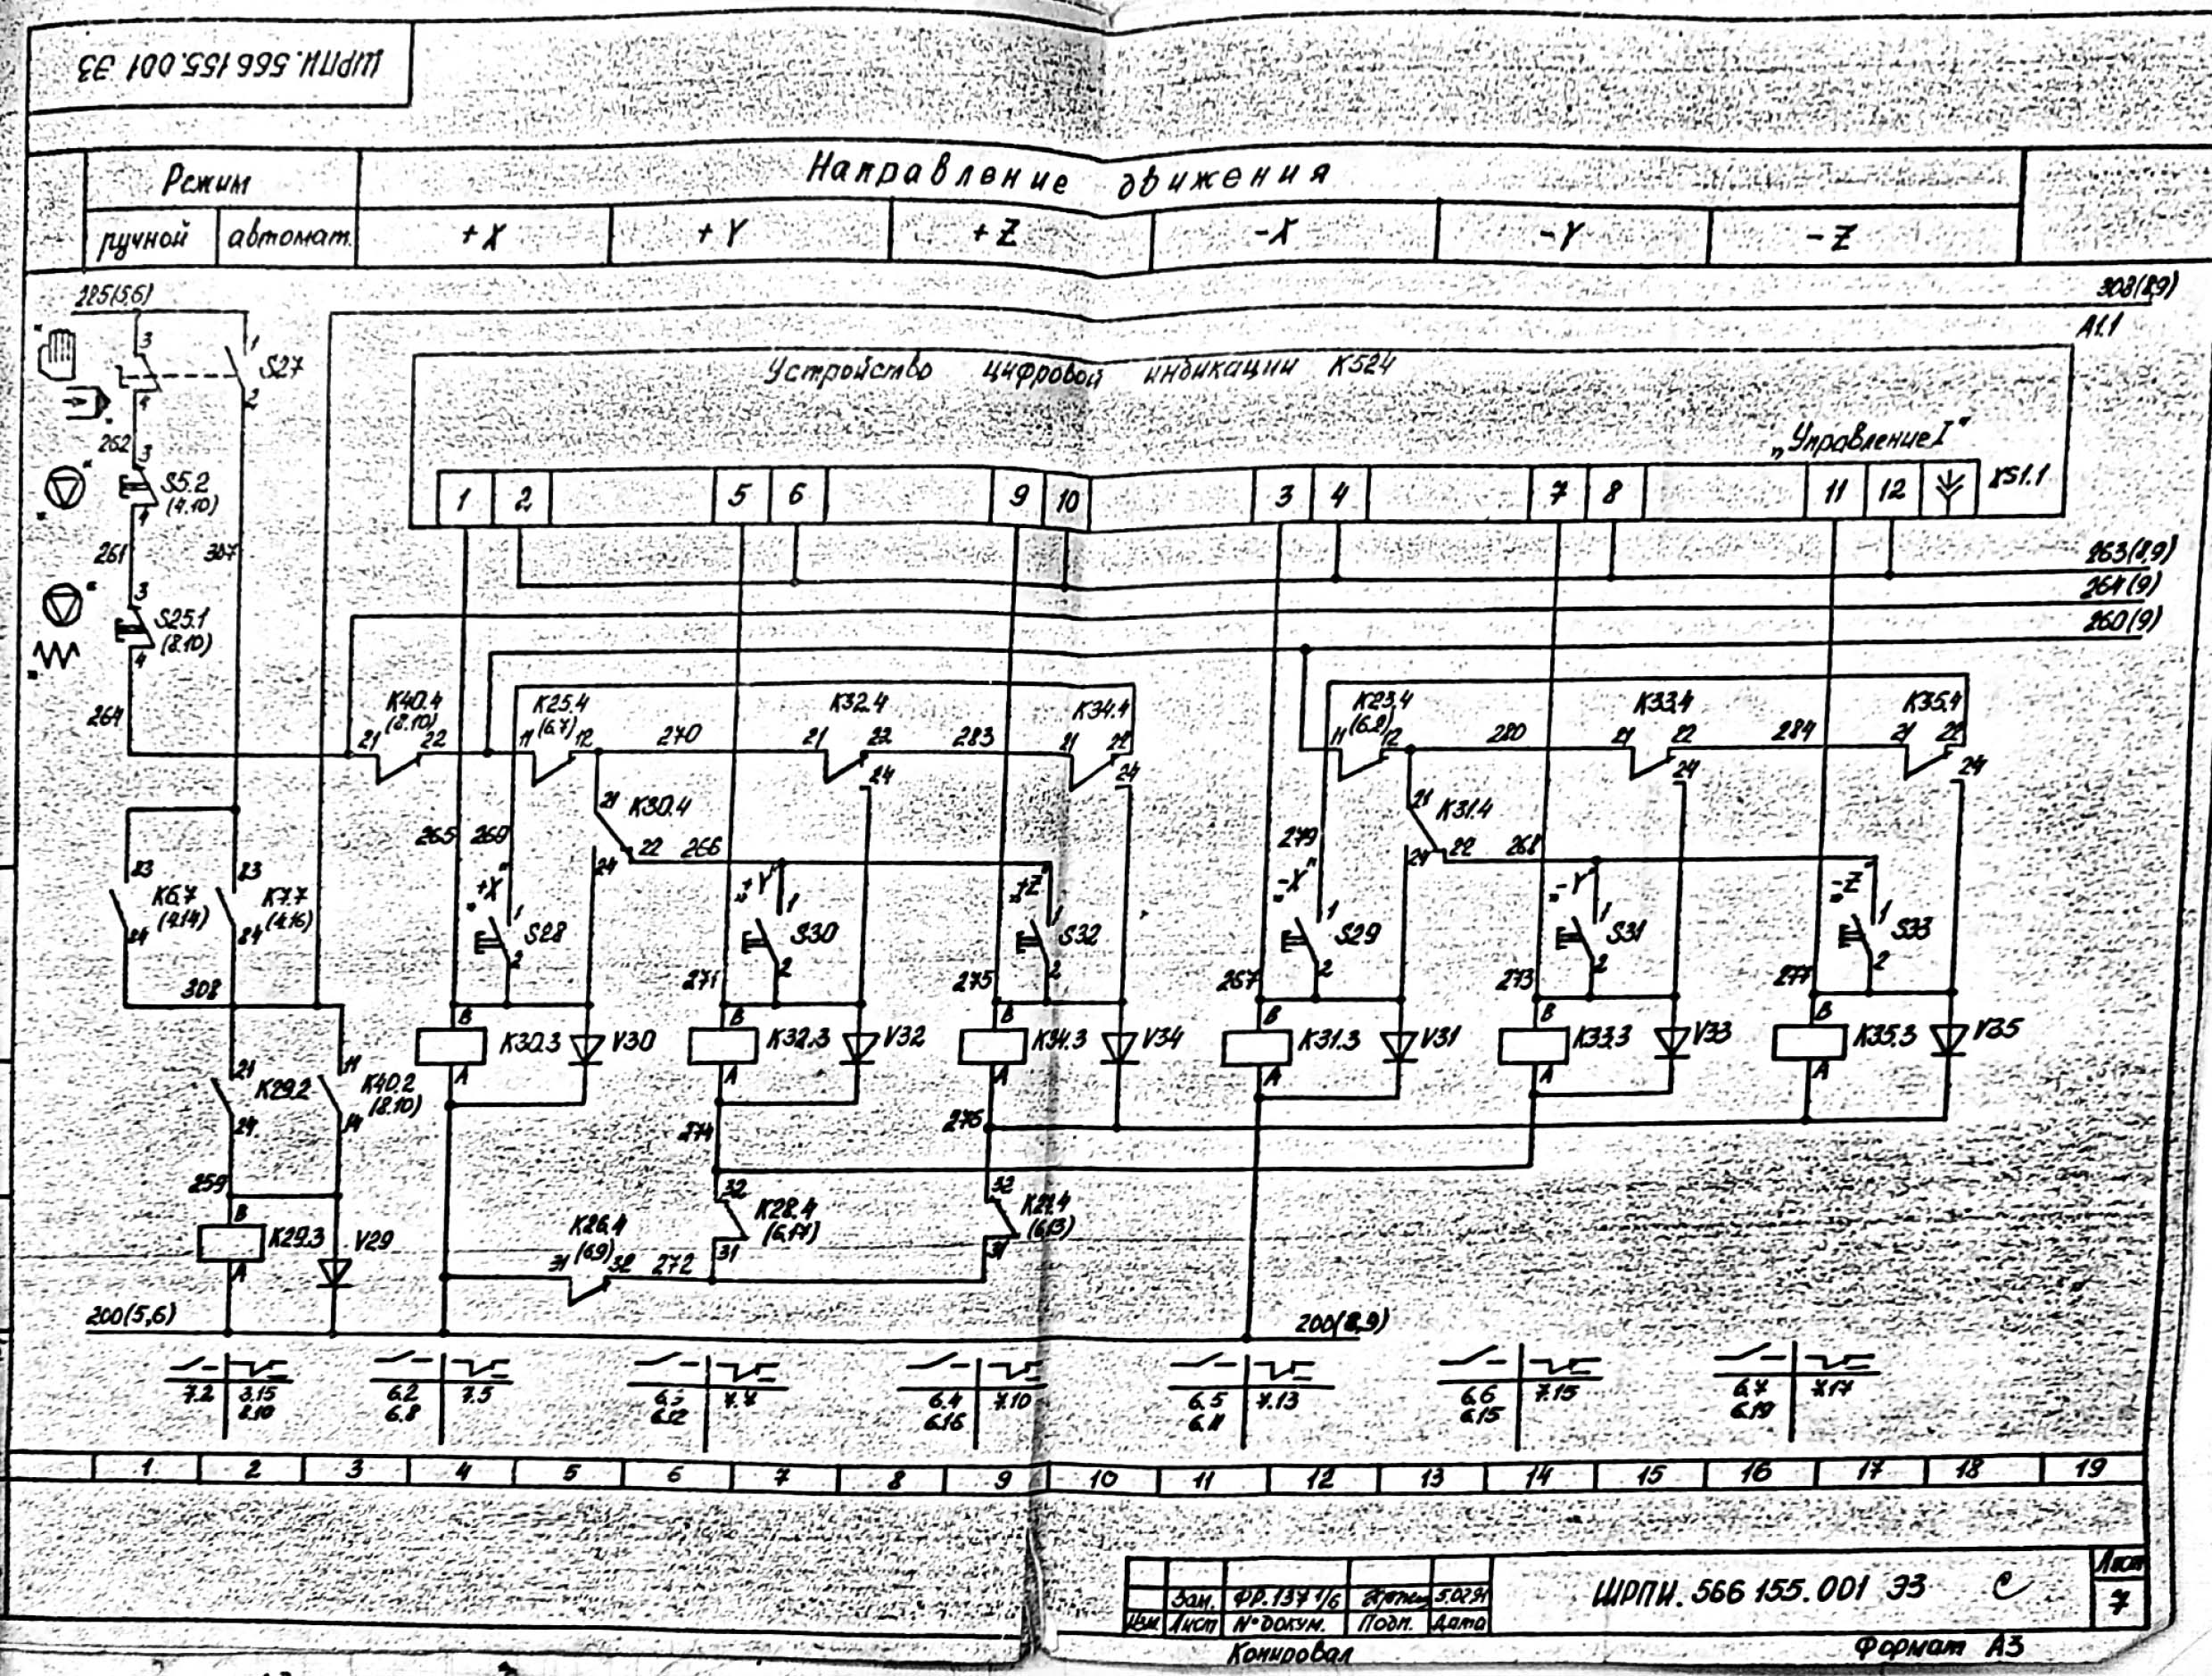 ШРПИ. 566 155. 001 Э3
Режим
Направление движения
ручной
автомат.
+X
+Y
+Z
-X
-Y
-Z
285(5,6)
308(8,9)
A1.1
3
1
S27
4
2
Устройство цифровой индикации К524
„Управление I"
262
3
S5.2
(4.10)
4
1
2
5
6
9
10
3
4
7
8
11
12
XS1.1
261
307
263(8,9)
264(9)
260(9)
3
S25.1
(8.10)
4
264
K40.4
(8.10)
21
22
K25.4
(6.7)
11
12
270
K32.4
21
22
24
283
K34.4
21
22
24
K23.4
(6.2)
11
12
280
K33.4
21
22
24
284
K35.4
21
22
24
21
K30.4
22
24
265
269
266
21
K31.4
22
24
279
268
23
K6.7
(4.14)
24
23
K7.7
(4.16)
24
„+X"
1
S28
2
„+Y"
1
S30
2
„+Z"
1
S32
2
„-X"
1
S29
2
„-Y"
1
S31
2
„-Z"
1
S33
2
308
271
275
267
273
277
B
K30.3
A
V30
B
K32.3
A
V32
B
K34.3
A
V34
B
K31.3
A
V31
B
K33.3
A
V33
B
K35.3
A
V35
21
K29.2
24
11
K40.2
(8.10)
14
274
276
259
B
K29.3
A
V29
K26.4
(6.9)
31
32
272
32
K28.4
31
32
(6.13)
31
200(5,6)
200(8,9)
7.2
3.15
8.10
6.2
6.8
7.5
6.12
7.7
6.4
6.16
7.10
6.5
6.11
7.13
6.6
6.15
7.15
6.7
6.19
7.17
1 2 3 4 5 6 7 8 9 10 11 12 13 14 15 16 17 18 19
Зам.
ФР.137 1/6
5.02.91
Изм.
Лист
№ докум.
Подп.
Дата
ШРПИ. 566 155. 001 Э3
Лист
7
Копировал
Формат А3